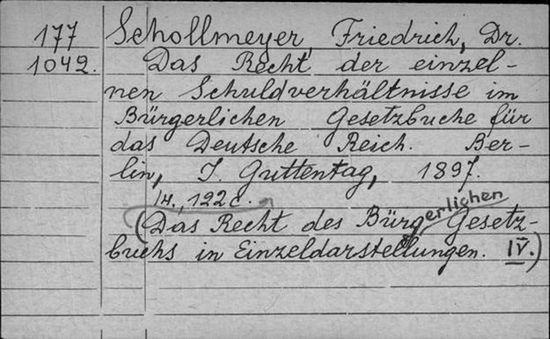 177 Schollmeyer, Friedrich, Dr.
1042. Das Recht der einzel-
nen Schuldverhältnisse im
Bürgerlichen Gesetzbuche für
das Deutsche Reich. Ber-
lin, J. Guttentag, 1897.
1н., 122 с.
(Das Recht des Bürgerlichen Gesetz-
buchs in Einzeldarstellungen. IV.)